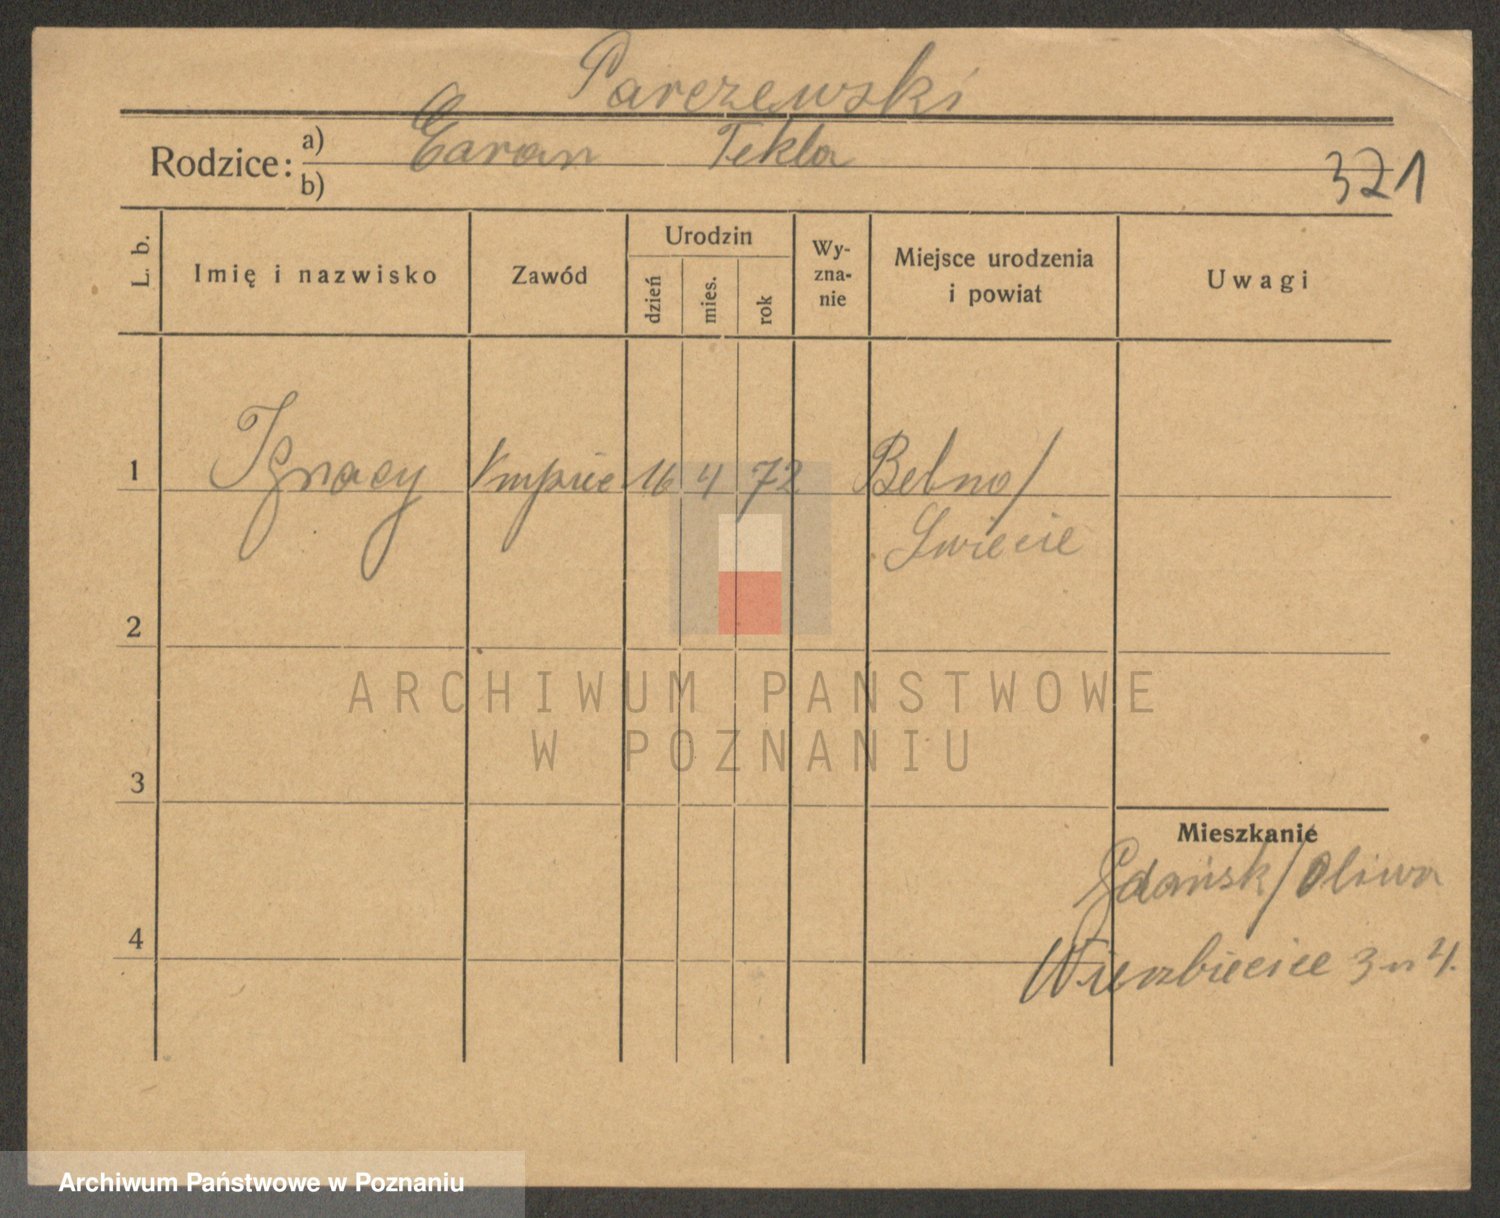 Parczewski
Rodzice: a) Tekla
b)
321
L. b.
Imię i nazwisko
Zawód
Urodzin
dzień
mies.
rok
Wy-
zna-
nie
Miejsce urodzenia
i powiat
Uwagi
1 Ignacy 16 4 72 Belno/
Swiecie
2
ARCHIWUM PAŃSTWOWE
W POZNANIU
3
Mieszkanie
Gdańsk/Oliwa
4
Wierzbięcice 3 m 4.
Archiwum Państwowe w Poznaniu